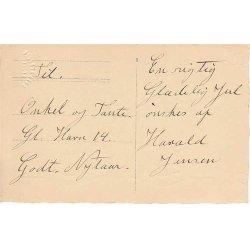 Til.
Onkel og Tante.
Gl. Havn 14.
Godt. Nytaar.
En rigtig
Glædelig Jul
ønskes af
Harald
Jensen